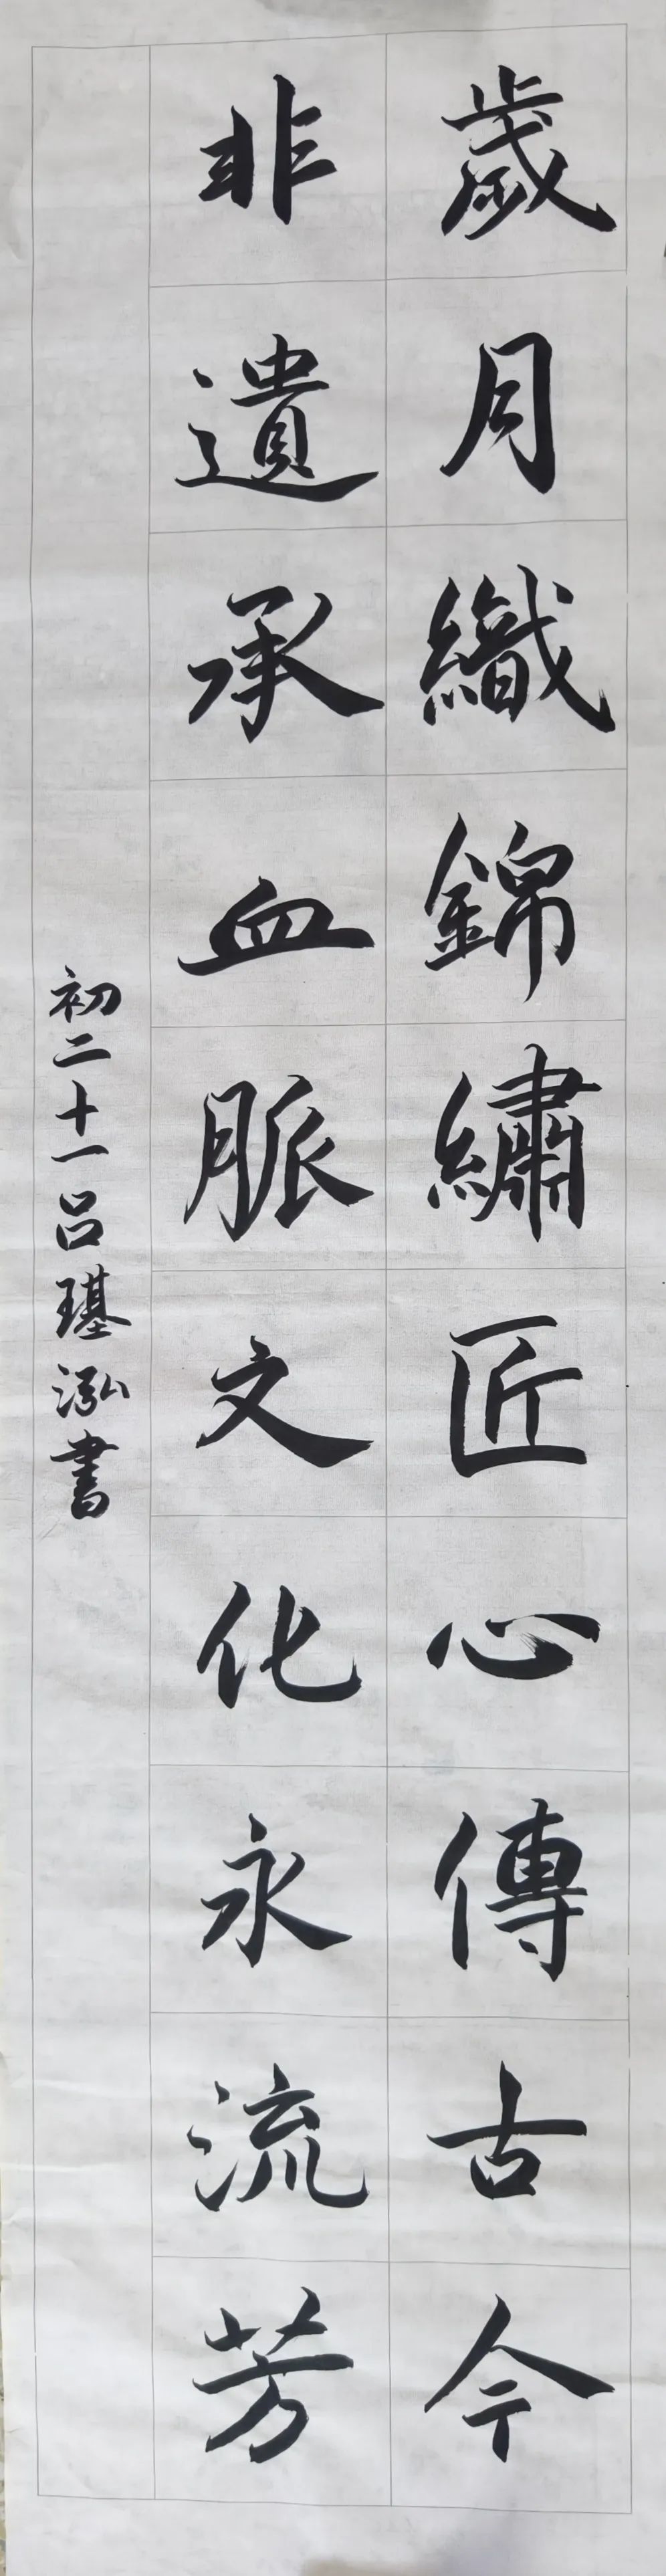 歲月織錦繡匠心傳古今
非遺承血脈文化永流芳
初二十一呂璂泓書